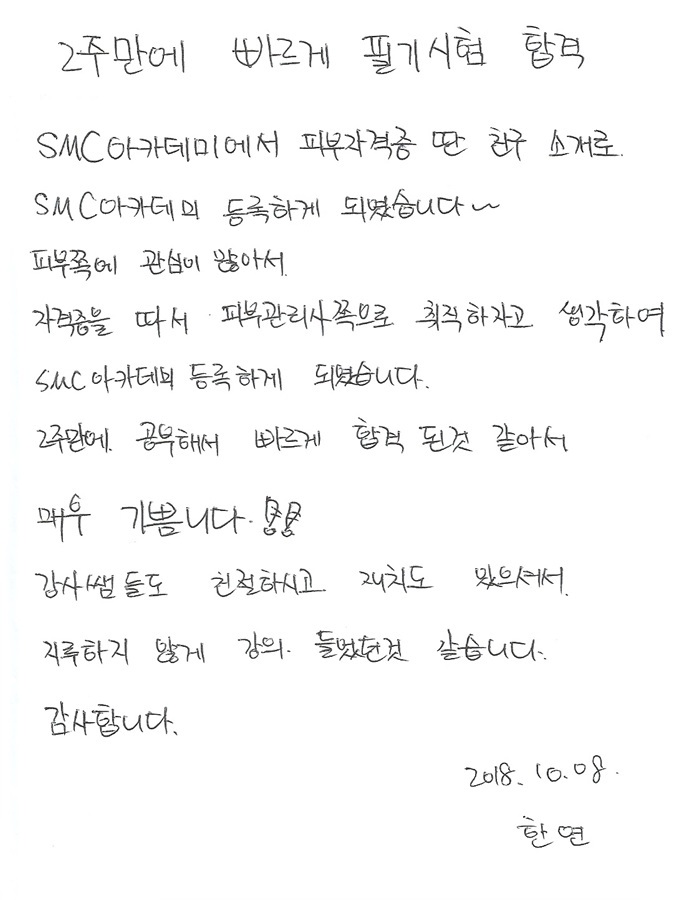 2주만에 빠르게 필기시험 합격
SMC아카데미에서 피부자격증 딴 친구 소개로.
SMC아카데미 등록하게 되였습니다~
피부쪽에 관심이 많아서
자격증을 따서 피부관리사쪽으로 취직하자고 생각하여
SMC아카데미 등록하게 되였습니다.
2주만에. 공부해서 빠르게 합격 된것 같아서
매우 기쁩니다.
강사쌤들도 친절하시고 재치도 있으셔서.
지루하지 않게 강의. 들었던것 같습니다.
감사합니다.
2018. 10. 08.
한연